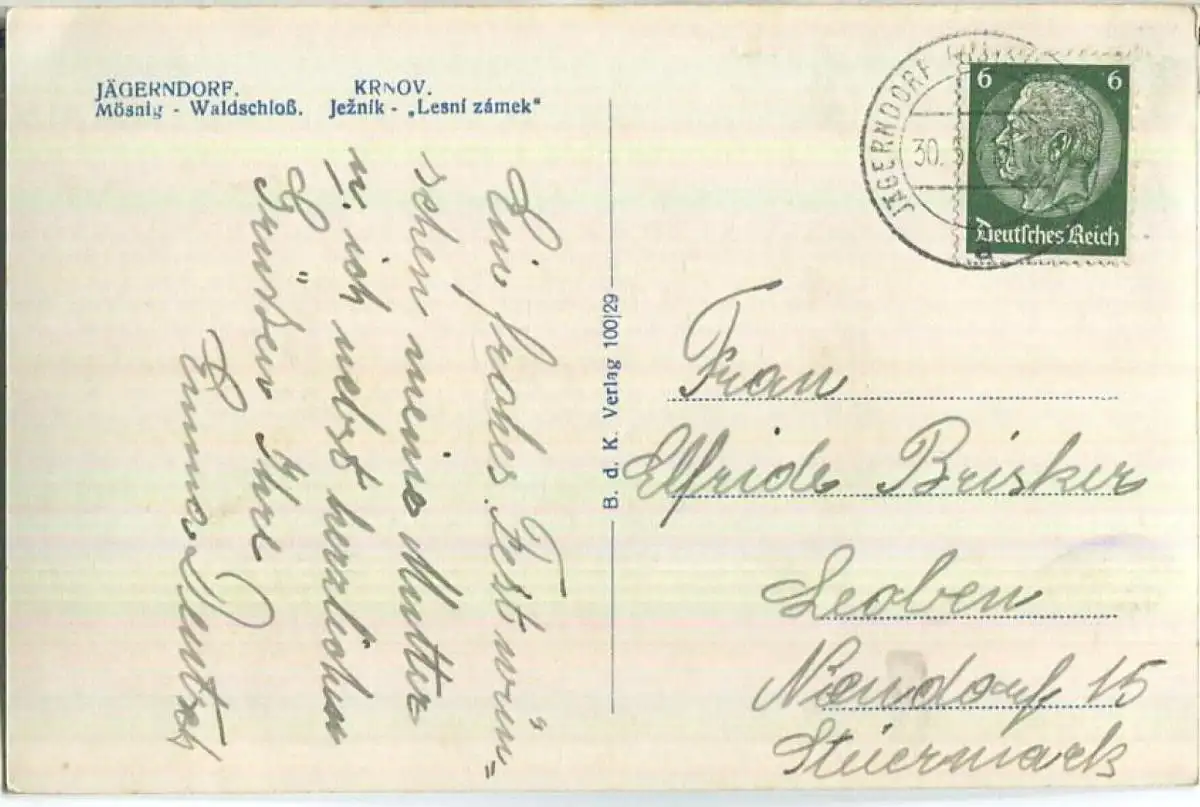 JÄGERNDORF. KRNOV.
Mösnig - Waldschloß. Ježník - „Lesní zámek"
Eine frohes Fest wün„
schen meine Mutter
u. ich nebst herzlichen
Grüßen Ihre
Emma
B. d. K. Verlag 100/29
JÄGERNDORF
30.
a
6 6
Deutsches Reich
Frau
Elfride Brisker
Leoben
Niendorf 15
Steiermark